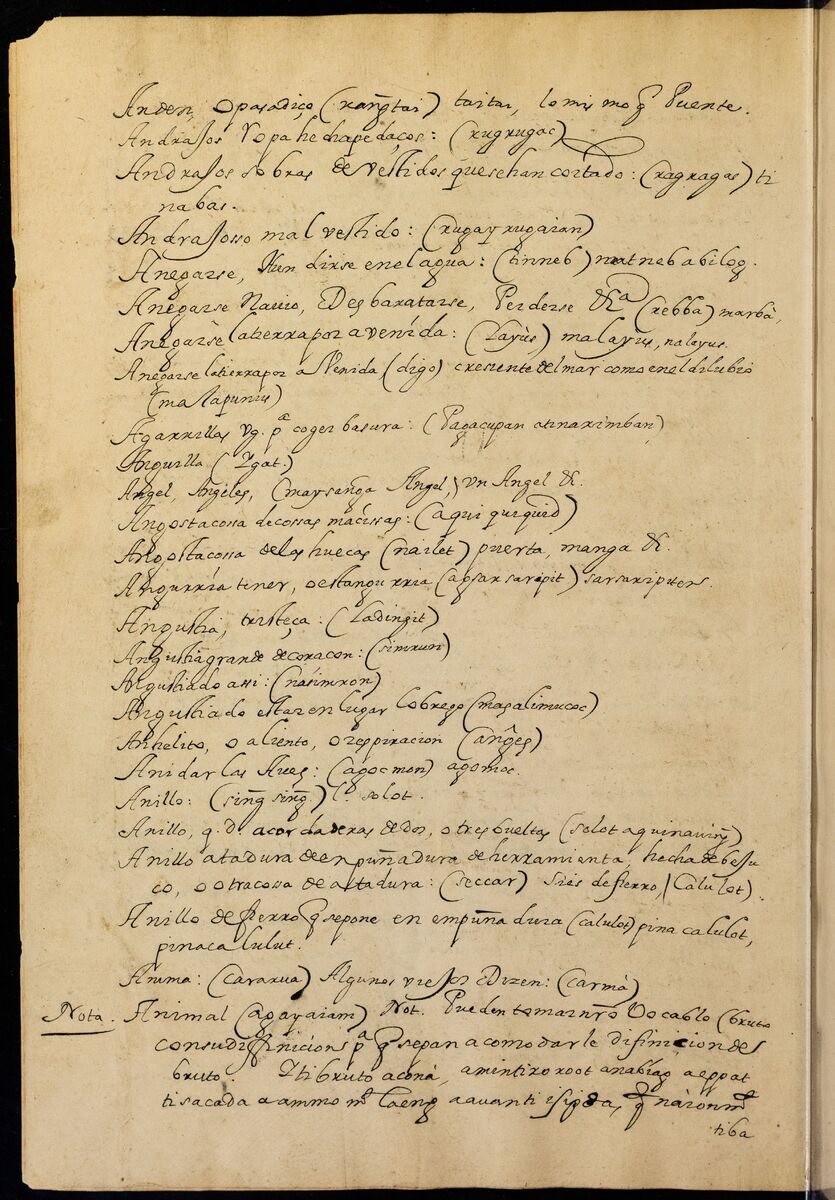 Anden, o pasadiço (rang̃tai) taitai, lo mismo q̃ Puente.
Andrajos Ropa hecha pedaços: (rugrugac)
Andrajos sobras de vestidos que se han cortado: (ragragas) ti
nabas.
Andrajosso mal vestido: (rugay rugaian)
Anegarse, Hundirse en el agua: (tinneb) natneb a bilog.
Anegarse Navio, Desbaratarse, Perderse &ª (rebba) marba,
Anegarse la tierra por avenida: (Layus) malayus, nalayus.
Anegarse la tierra por avenida (digo) cresiente del mar como en el dilubio
(malapunus)
Agarrillas vg. pª coger basura: (Pagacupan atinarimban)
Anguilla (Ygat.)
Angel, Angeles, (maysanga Angel,) un Angel &.
Angosta cossa de cossas masissas: (aqui quiquid)
Angosta cossa de las huecas (nailet) puerta, manga &.
Angurria tener, o estangurria (agsarsaripit) sarsaripiten.
Angustia, tristeça: (Ladingit)
Angustia grande de coraçon: (simrun)
Angustiado assi: (nasimron)
Angustiado estar en lugar lobrego (magalimucoc)
Anhelito, o aliento, o respiracion (ang̃es)
Anidar las Aves: (agocmon) agomoc.
Anillo: (sing̃ sing̃) l. solot.
Anillo, q. d. acordaderas de dos, o tres bueltas (solot a quinaviñ)
Anillo atadura de enpuñadura de herramienta, hecha de beju
co, o otra cossa de atadura: (seccar) si es de fierro, (Calulot).
Anillo de fierro q̃ se pone en empuñadura (calulot) pinacalulot,
pinacalulut.
Anima: (cararua) Algunos viejos dizen: (carma)
Nota. Animal (agayaiam) Not. Pueden tomar nr̃o Vocablo (bruto
con su difinicion pª q̃ sepan acomodarle difinicion des
bruto Yti bruto acona, amintiro root anabiag aegpat
ti sacada a ammo laeng a avanti isipda,
tiba